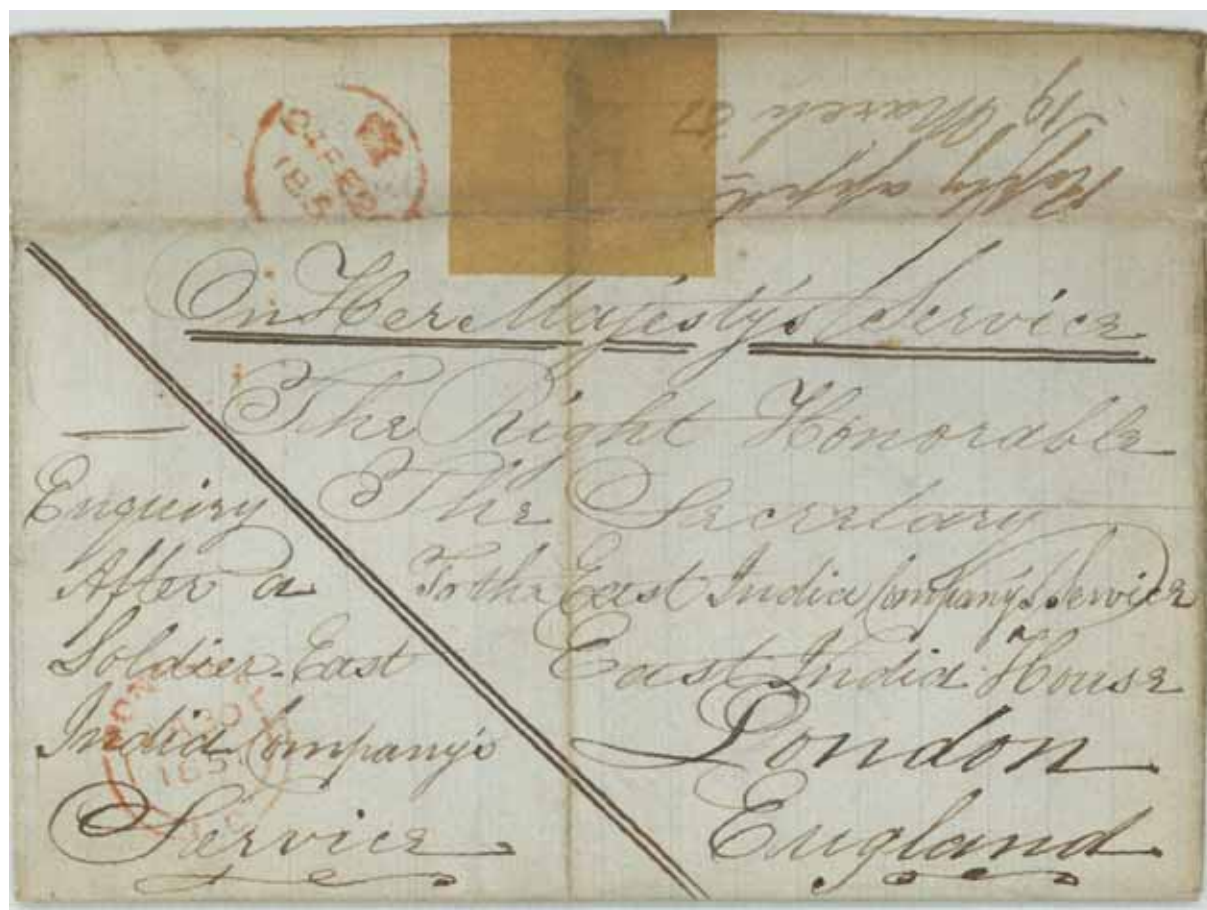 19 March
On Her Majesty's Service
The Right Honorable
The Secretary
To the East India Company's Service
East India House
London
England
Enquiry
After a
Soldier-East
India Company's
Service